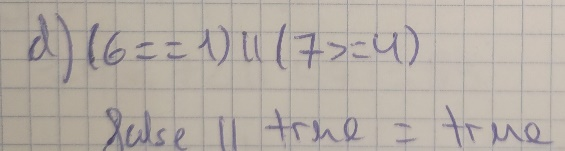 d) (6 == 1) || (7 >= 4)
false || true = true